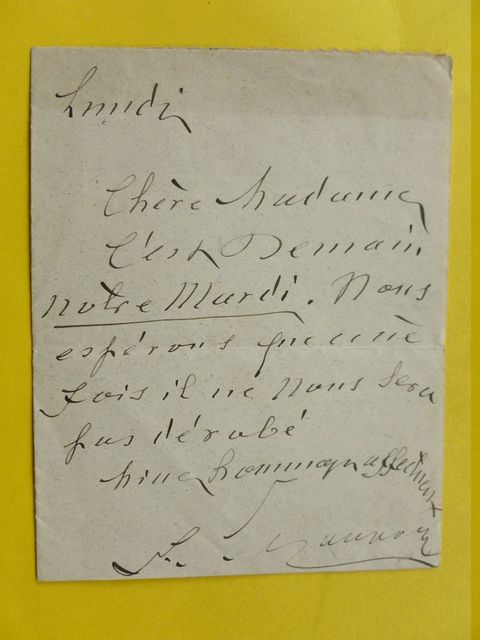 Lundi
Chère Madame
C'est Demain
notre Mardi. Nous
espérons que cette
fois il ne nous sera
pas dérobé
hommages affectueux